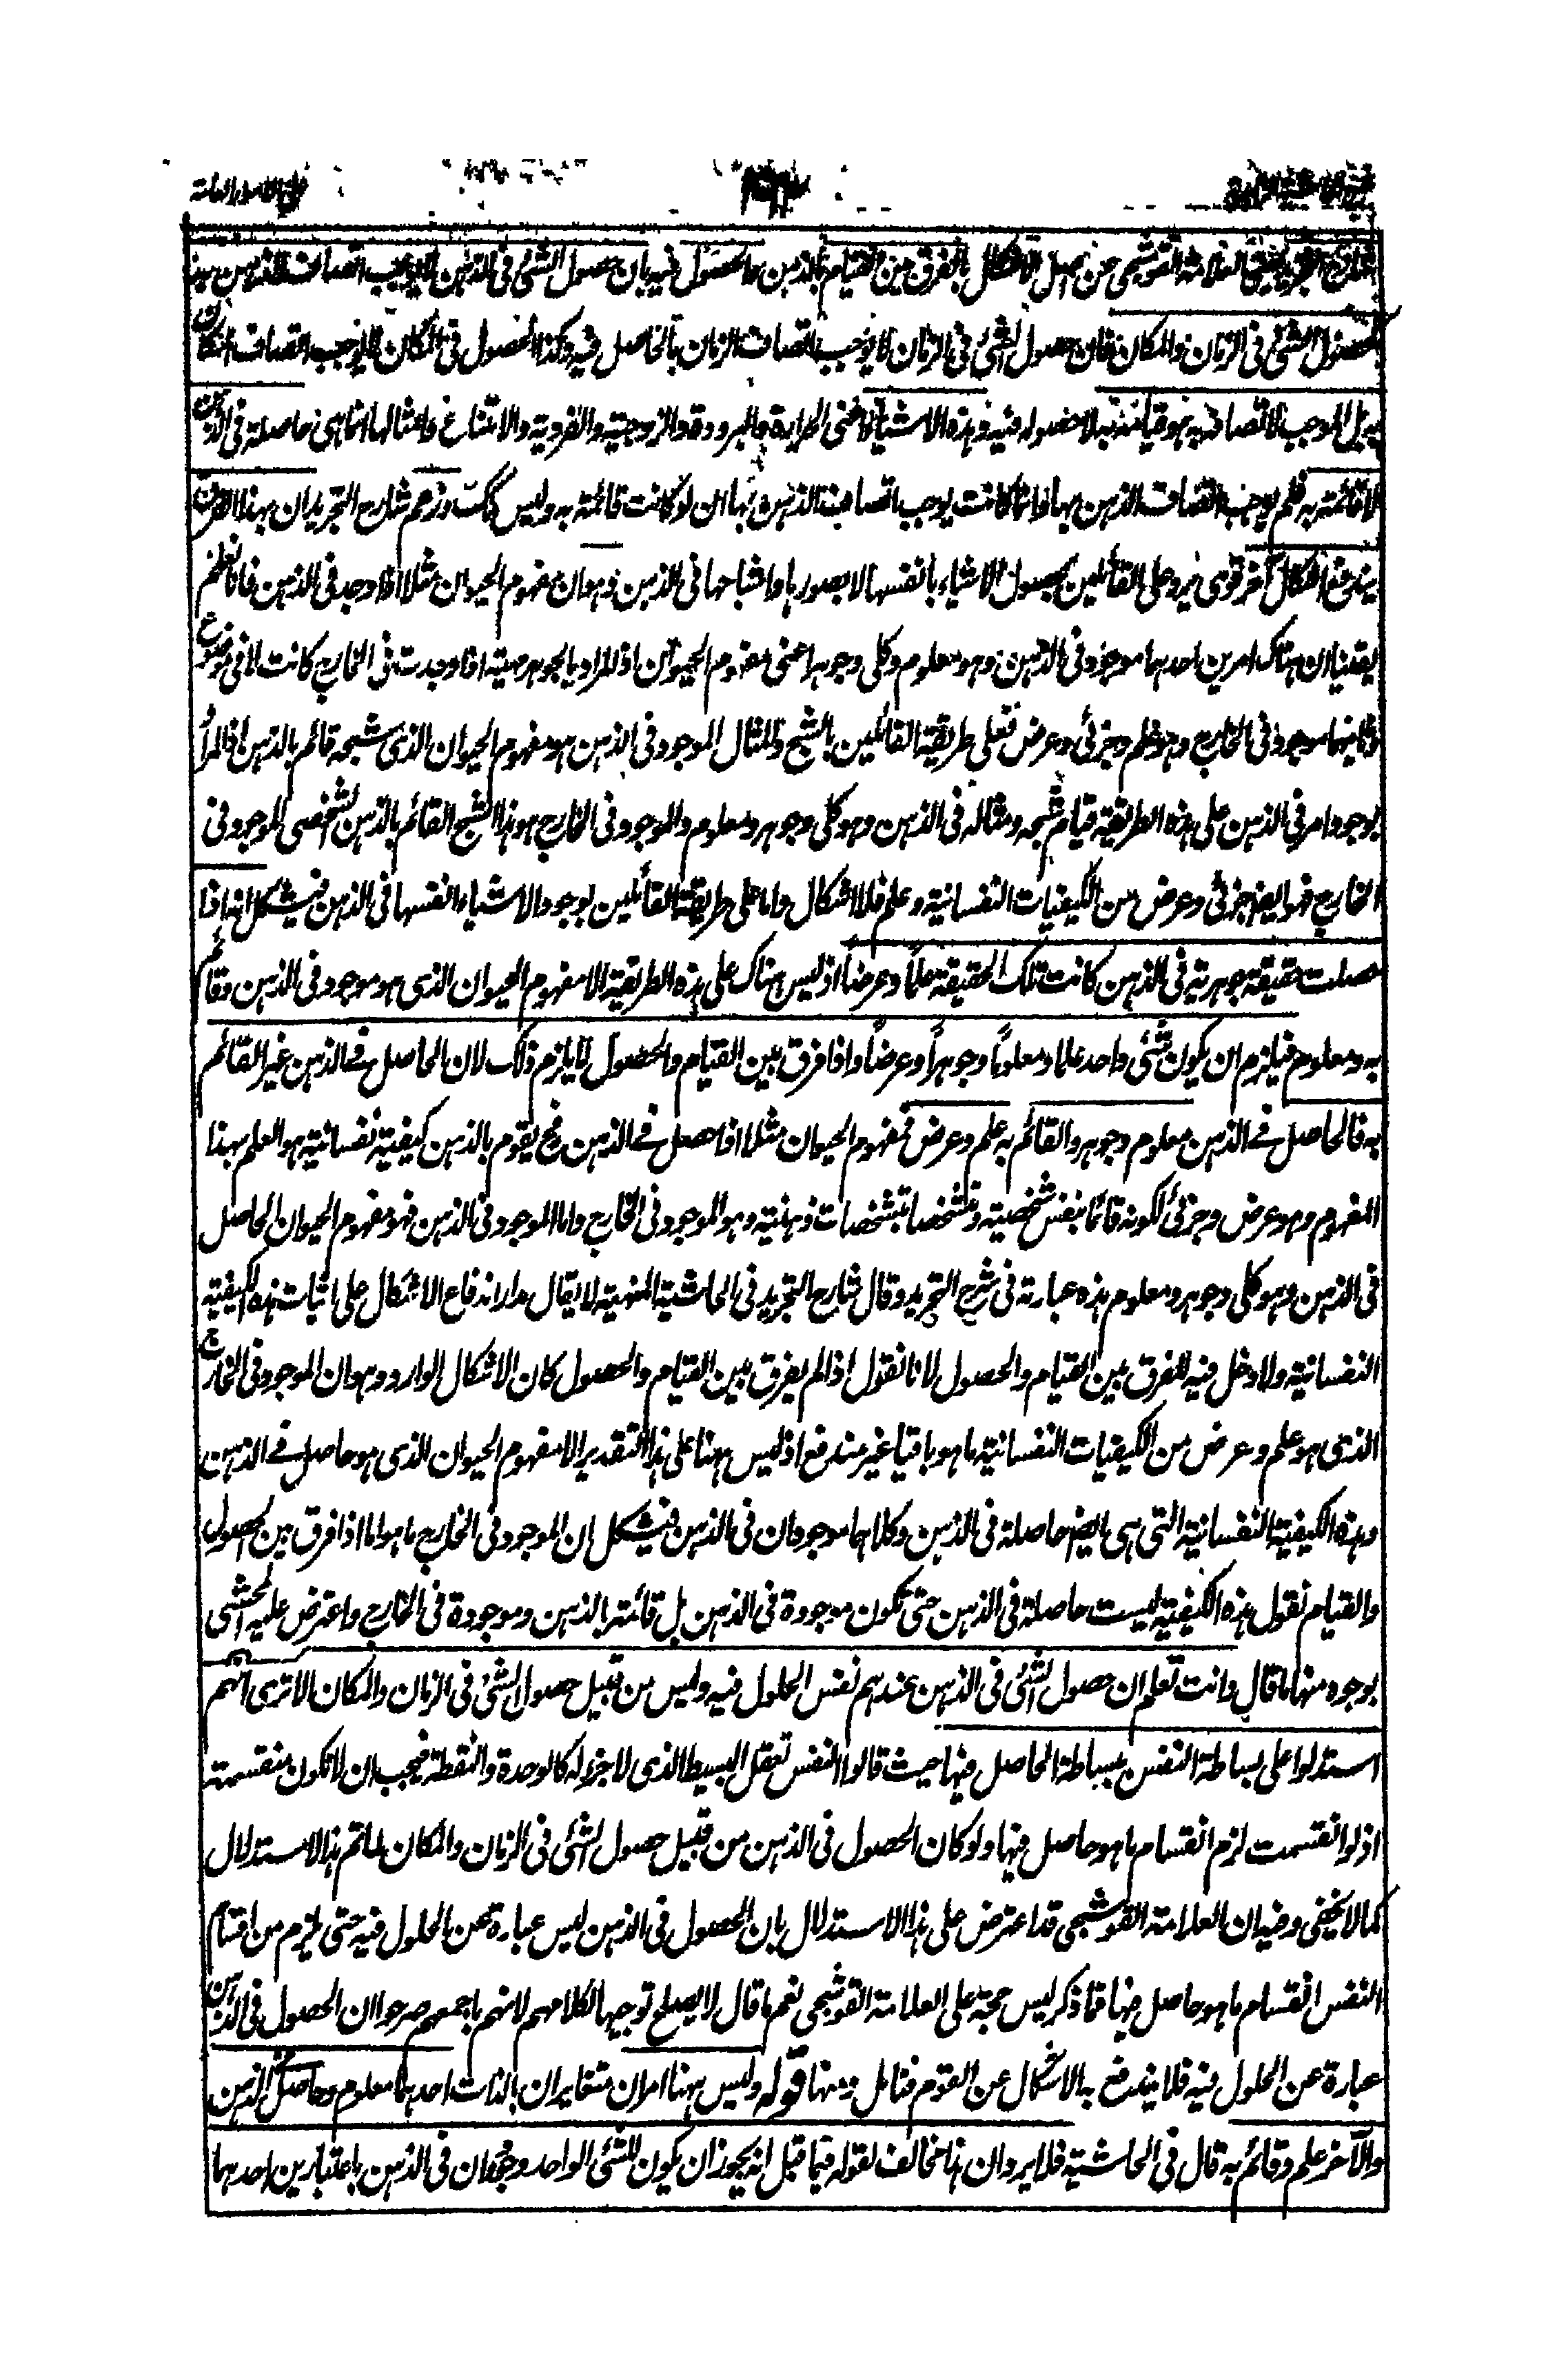 العلامة القوشجي عن اصل الاشكال بالفرق بين القيام بالذهن والحصول فيه بان حصول الشئ في الذهن لا يوجب اتصاف الذهن به
كحصول الشئ في الزمان والمكان فان حصول الشئ في الزمان لا يوجب اتصاف الزمان بالحاصل فيه وكذا الحصول في المكان لا يوجب اتصاف المكان
به بل الموجب لاتصاف شئ بشئ هو قيامه به لا حصوله فيه وهذه الاشياء اعنى الحرارة والبرودة والزوجية والفردية والامتناع وامثالها انما هى حاصلة في الذهن
لا قائمة به فلم يوجب اتصاف الذهن بها وانما كانت يوجب اتصاف الذهن بها ان لو كانت قائمة به وليس كذلك وزعم شارح التجريد ان بهذا الفرق
يندفع اشكال آخر قوى يرد على القائلين بحصول الاشياء بانفسها لا بصورها واشباحها في الذهن وهو ان مفهوم الحيوان مثلا اذا وجد في الذهن فانا نعلم
يقينا ان هناك امرين احدهما موجود في الذهن وهو معلوم وكلى وجوهر اعنى مفهوم الحيوان اذ المراد بالجوهر مهية اذا وجدت في الخارج كانت لا في موضوع
وثانيهما موجود في الخارج وهو علم وجزئى وعرض فعلى طريقة القائلين بالشبح والمثال الموجود في الذهن هو مفهوم الحيوان الذى شبحه قائم بالذهن اذ المراد
بوجود امر في الذهن على هذه الطريقة قيام شبحه ومثاله في الذهن وهو كلى وجوهر ومعلوم والموجود في الخارج هو هذا الشبح القائم بالذهن الشخصى الموجود في
الخارج فهو ايضا جزئى وعرض من الكيفيات النفسانية وعلم فلا اشكال واما على طريقة القائلين بوجود الاشياء انفسها في الذهن فيشكل انه اذا
حصلت حقيقة جوهرية في الذهن كانت تلك الحقيقة علماً وعرضاً اذ ليس هناك على هذه الطريقة الا مفهوم الحيوان الذى هو موجود في الذهن وقائم
به ومعلوم فيلزم ان يكون شئ واحد علما ومعلوماً وجوهراً وعرضاً واذا فرق بين القيام والحصول لا يلزم ذلك لان الحاصل في الذهن غير القائم
به فالحاصل في الذهن معلوم وجوهر والقائم به علم وعرض فمفهوم الحيوان مثلا اذا حصل في الذهن فح يقوم بالذهن كيفية نفسانية هو العلم بهذا
المفهوم وهو عرض وجزئى لكونه قائما بنفس شخصية ومتشخصا بتشخصات ذهنية وهو الموجود في الخارج واما الموجود في الذهن فهو مفهوم الحيوان الحاصل
في الذهن وهو كلى وجوهر ومعلوم هذه عبارته في شرح التجريد وقال شارح التجريد في الحاشية المنهية لا يقال مدار اندفاع الاشكال على اثبات هذه الكيفية
النفسانية ولا دخل فيه للفرق بين القيام والحصول لانا نقول اذا لم يفرق بين القيام والحصول كان الاشكال الوارد وهو ان الموجود في الخارج
الذى هو علم وعرض من الكيفيات النفسانية ما هو باقيا غير مندفع اذ ليس ههنا على هذا التقدير الا مفهوم الحيوان الذى هو حاصل في الذهن
وهذه الكيفية النفسانية التى هى ايضا حاصلة في الذهن وكلاهما موجودان في الذهن فيشكل ان الموجود في الخارج ما هو اما اذا فرق بين الحصول
والقيام نقول هذه الكيفية ليست حاصلة في الذهن حتى تكون موجودة في الذهن بل قائمة بالذهن وموجودة في الخارج واعترض عليه المحشى
بوجوه منها ما قال وانت تعلم ان حصول الشئ في الذهن عندهم نفس الحلول فيه وليس من قبيل حصول الشئ في الزمان والمكان الا ترى انهم
استدلوا على بساطة النفس ببساطة الحاصل فيها حيث قالوا النفس تعقل البسيط الذى لا جزء له كالوحدة والنقطة فيجب ان لا تكون منقسمة
اذ لو انقسمت لزم انقسام ما هو حاصل فيها ولو كان الحصول في الذهن من قبيل حصول الشئ في الزمان والمكان لما تم هذا الاستدلال
كما لا يخفى وفيه ان العلامة القوشجى قد اعترض على هذا الاستدلال بان الحصول في الذهن ليس عبارة عن الحلول فيه حتى يلزم من انقسام
النفس انقسام ما هو حاصل فيها فما ذكر ليس حجة على العلامة القوشجى نعم ما قال لا يصلح توجيها لكلامهم لانهم باجمعهم صرحوا ان الحصول في الذهن
عبارة عن الحلول فيه فلا يندفع به الاشكال عن القوم فتامل ومنها قوله وليس ههنا امران متغايران بالذات احدهما معلوم وحاصل في الذهن
والآخر علم وقائم به قال في الحاشية فلا يرد ان هذا مخالف لقوله فيما قبل انه يجوز ان يكون للشئ الواحد وجودان في الذهن باعتبارين احدهما